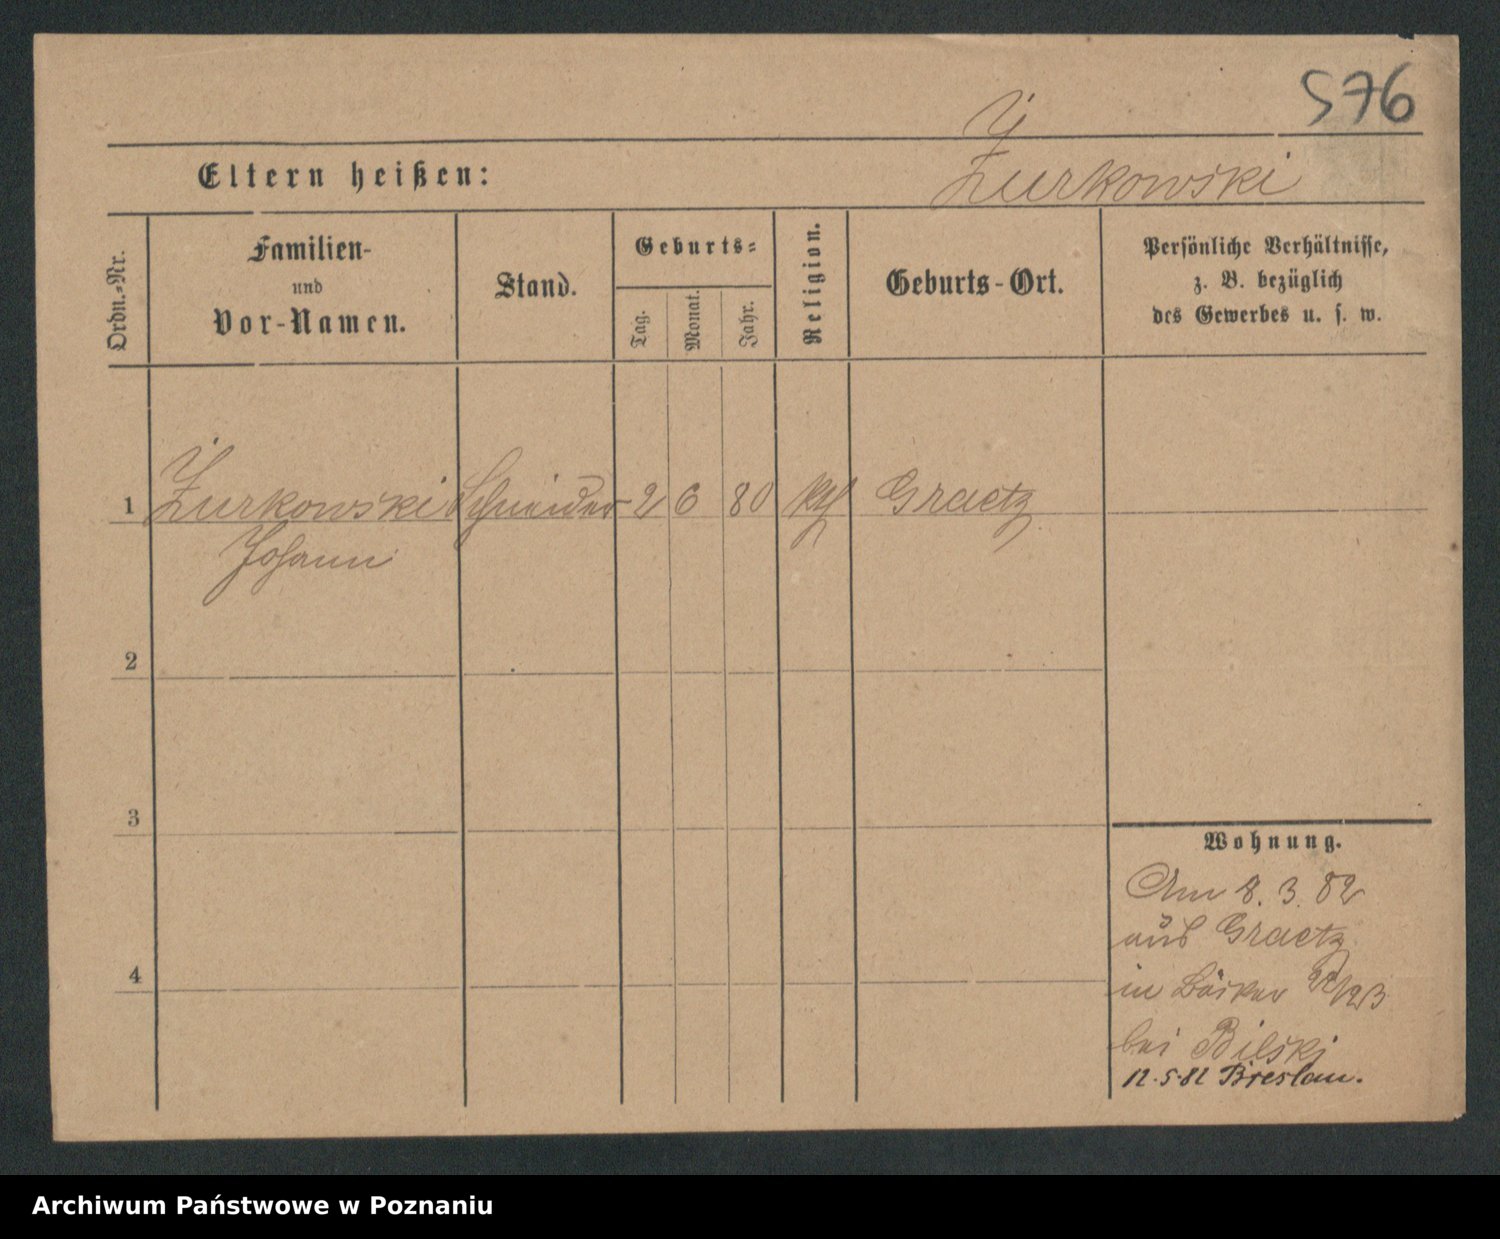 576
Ż
Eltern heißen:
Żurkowski
Ordn.-Nr.
Familien-
und
Vor-Namen.
Stand.
Geburts-
Tag.
Monat.
Jahr.
Religion.
Geburts-Ort.
Persönliche Verhältnisse,
z. B. bezüglich
des Gewerbes u. s. w.
1 Żurkowski Schneider 2 6 80 kth Graetz
Johann
2
3
4
Wohnung.
Am 8. 3. 82
aus Graetz
in
bei Bilski
12.5.82 Breslau.
Archiwum Państwowe w Poznaniu